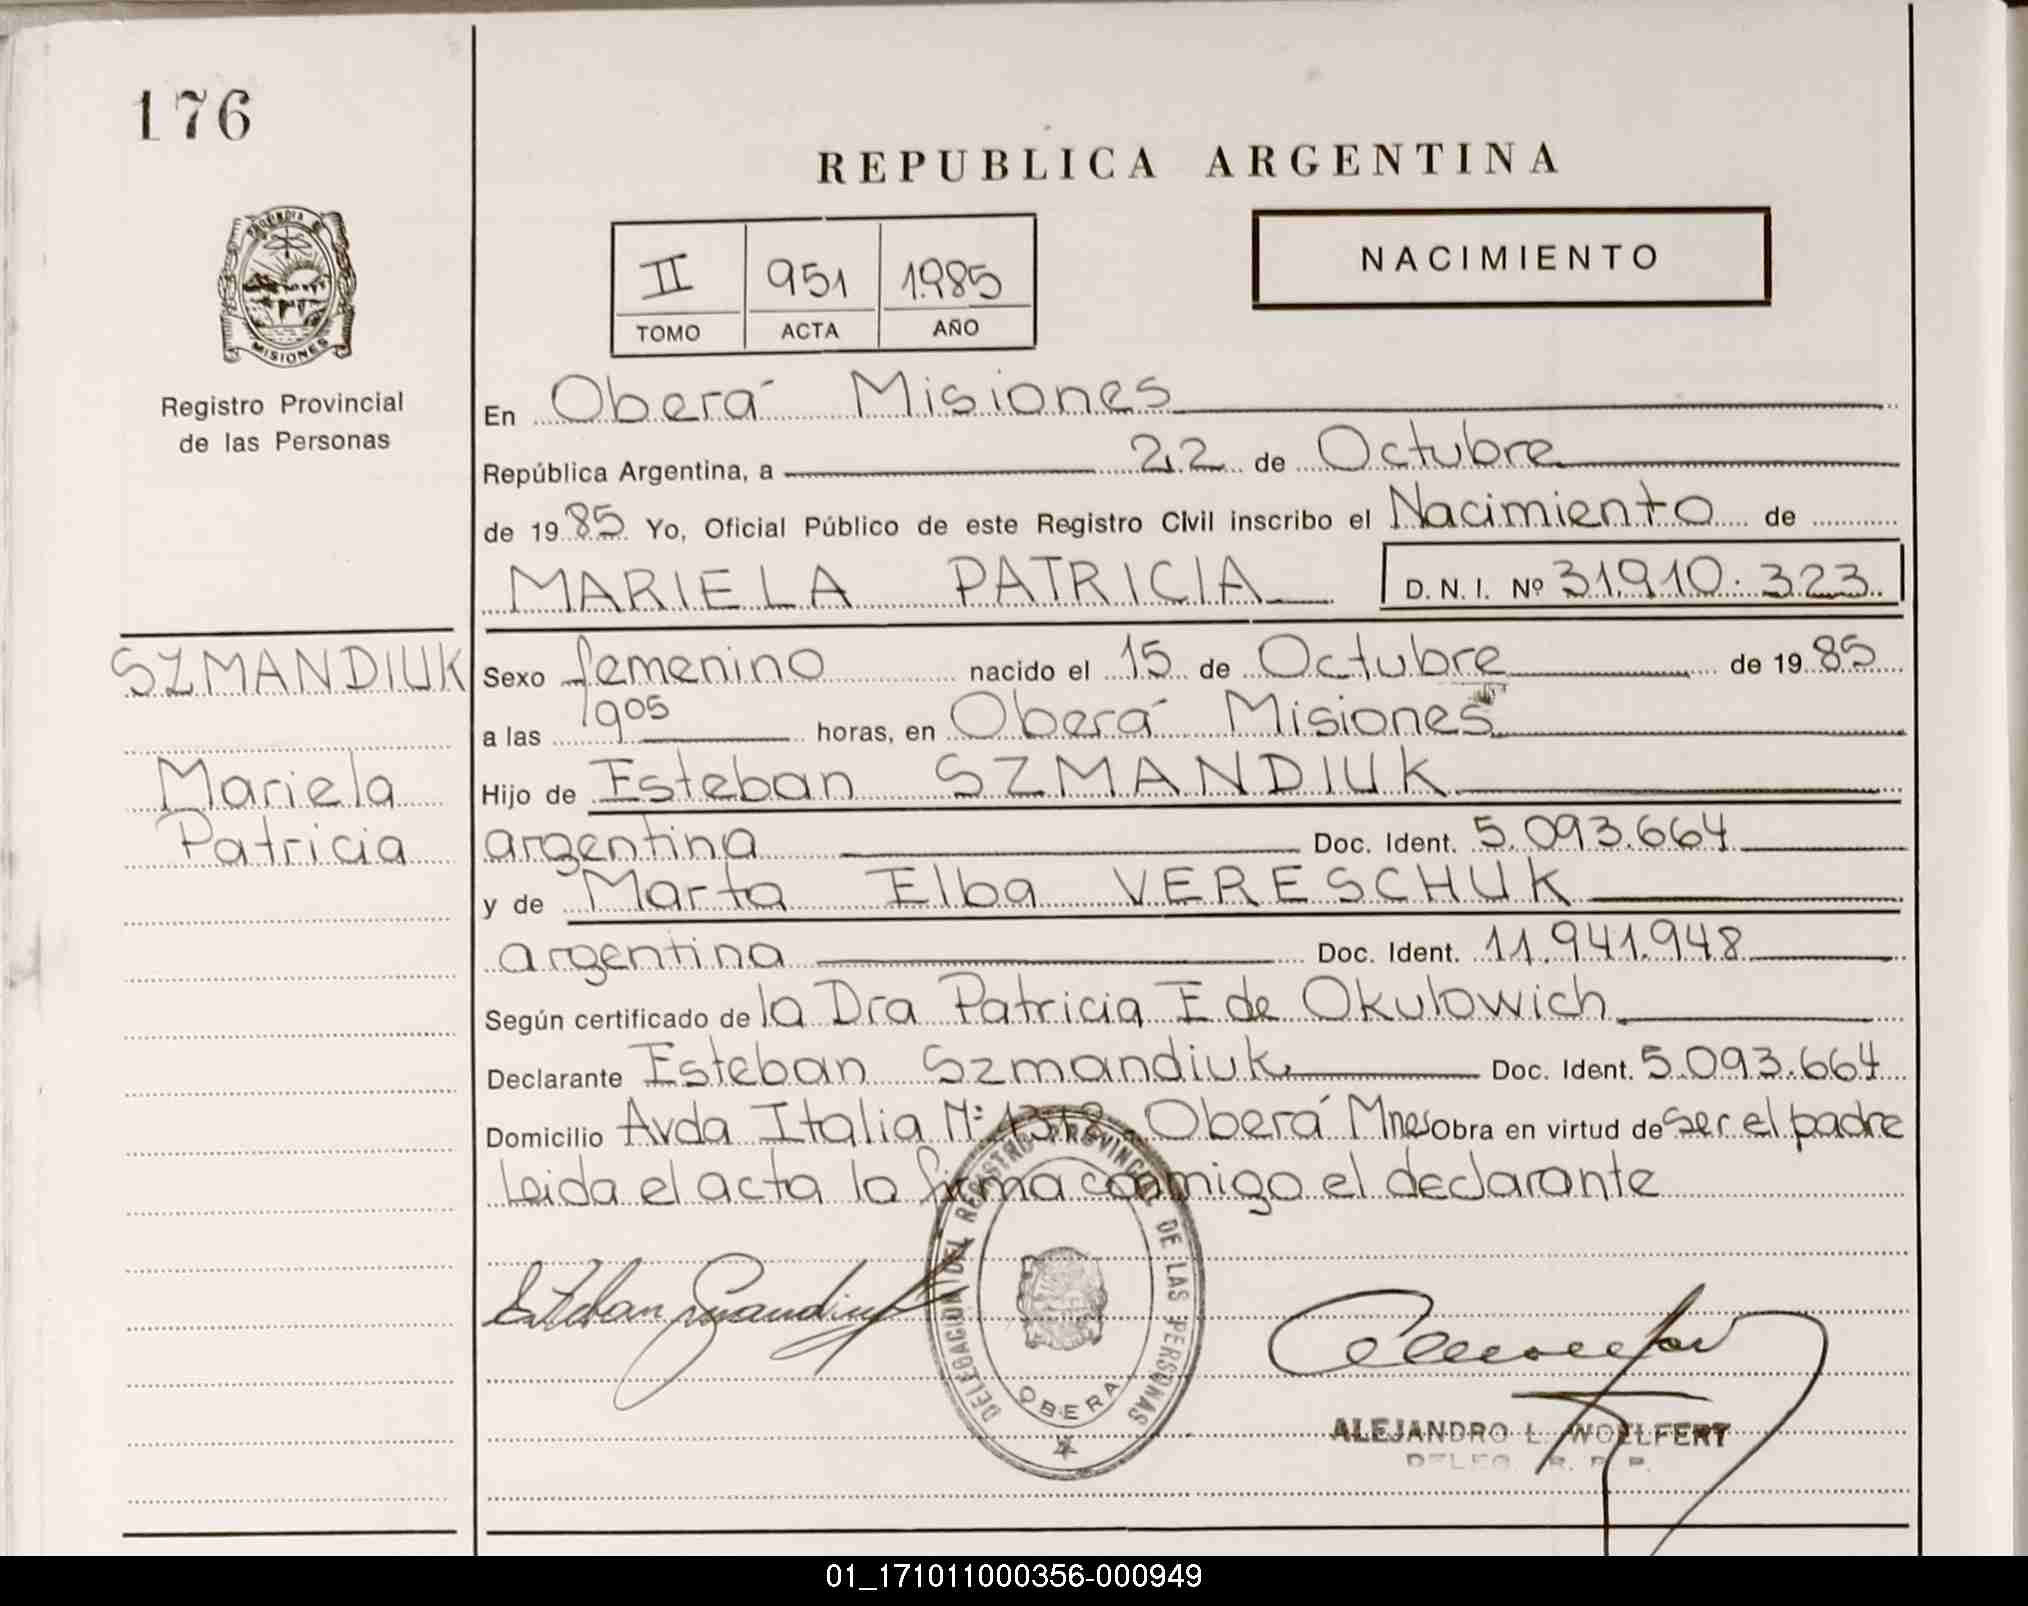 176
REPUBLICA ARGENTINA
PROVINCIA DE
MISIONES
Registro Provincial
de las Personas
II 951 1985
TOMO ACTA AÑO
NACIMIENTO
En Oberá Misiones
República Argentina, a 22 de Octubre
de 1985 Yo, Oficial Público de este Registro Civil inscribo el Nacimiento de
MARIELA PATRICIA D. N. I. Nº 31.910.323
SZMANDIUK
Mariela
Patricia
Sexo femenino nacido el 15 de Octubre de 1985
a las 1905 horas, en Oberá Misiones
Hijo de Esteban SZMANDIUK
argentina Doc. Ident. 5.093.664
y de Marta Elba VERESCHUK
argentina Doc. Ident. 11.941.948
Según certificado de la Dra Patricia E de Okulowich
Declarante Esteban Szmandiuk Doc. Ident. 5.093.664
Domicilio Avda Italia Nº Oberá Mnes Obra en virtud de ser el padre
leida el acta la firma conmigo el declarante
Esteban Szmandiuk
DELEGACION DEL REGISTRO PROVINCIAL DE LAS PERSONAS
OBERA
ALEJANDRO L. WOELFERT
DELEG. R. P. P.
01_171011000356-000949